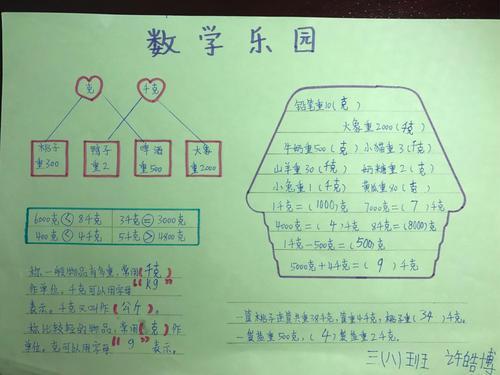 数学乐园
克 千克
桃子重300 鸭子重2 啤酒重500 大象重2000
6000克<8千克 3千克=3000克
400克<4千克 5千克>4800克
称一般物品有多重,常用(千克)
作单位,千克可以用字母"kg"
表示。千克又叫作(公斤)
称比较轻的物品,常用(克)作
单位。克可以用字母"g"表示。
铅笔重10(克)
大象重2000(千克)
牛奶重500(克) 小猫重3(千克)
山羊重30(千克) 奶糖重2(克)
小兔重1(千克) 黄瓜重90(克)
1千克=(1000)克 7000克=(7)千克
4000克=(4)千克 8千克=(8000)克
1千克-500克=(500)克
5000克+4千克=(9)千克
一筐桃子连筐共重38千克,筐重4千克,桃子重(34)千克。
一袋盐重500克,(4)袋盐重2千克。
三(八)班 许皓博